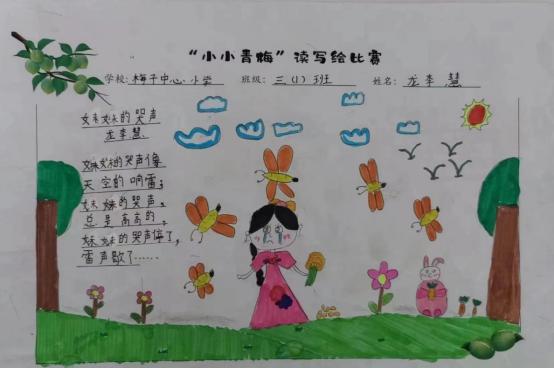 “小小青梅”读写绘比赛
学校：梅子中心小学 班级：三（1）班 姓名：龙李慧
妹妹的哭声
龙李慧
妹妹的哭声像
天空的响雷；
妹妹的哭声，
总是高高的，
妹妹的哭声停了，
雷声歇了……